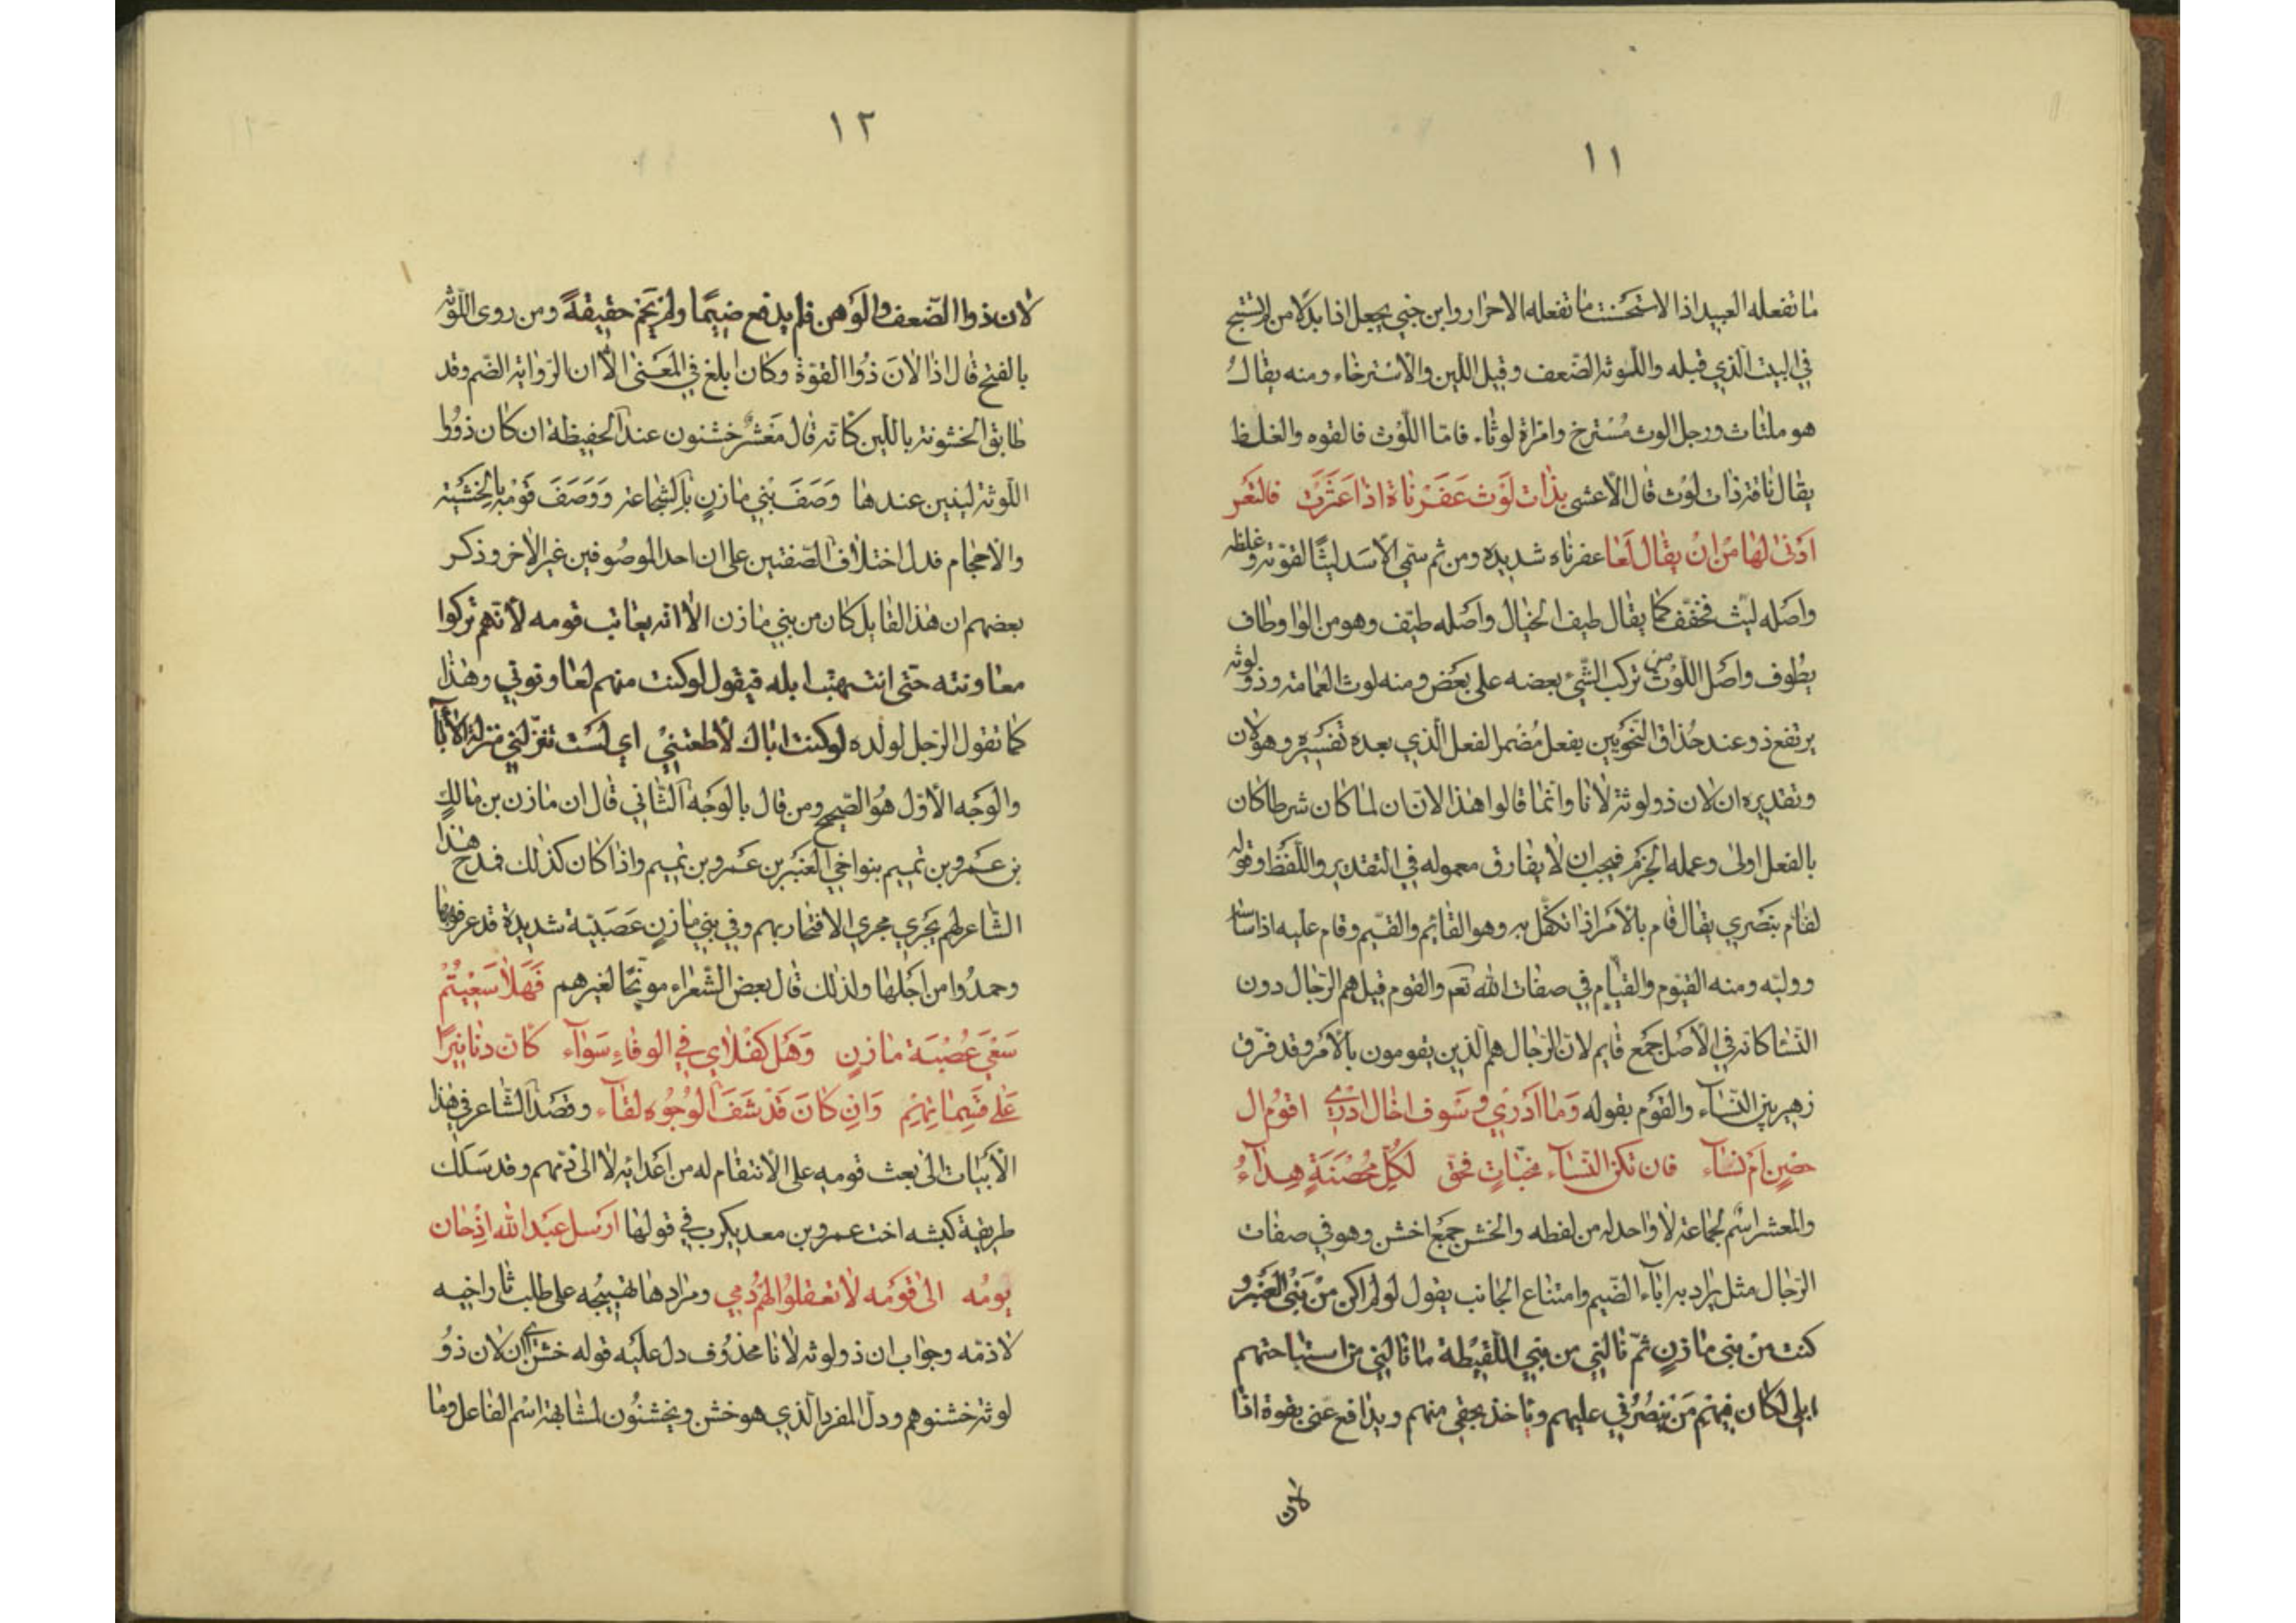 ١١
ما تفعله العبيد اذا لاستحسنت ما تفعله الاحرار وابن جني يجعل اذا بدلا من لم تستبح
في البيت الذي قبله واللوثة الضعف وقيل اللين والاسترخاء ومنه يقال
هو ملتاث ورجل الوث مسترخ وامراة لوثاء فاما اللوث فالقوه والغلظ
يقال ناقة ذات لوث قال الأعشى بذات لوث عفرناة اذا عثرت فالتعر
ادنى لها من ان يقال لعا عفرناه شديده ومن ثم سمي الاسد ليثا لقوته وغلظه
واصله ليث فخفف كما يقال طيف الخيال واصله طيف وهو من الواو طاف
يطوف واصل اللوث من تركب الشئ بعضه على بعض ومنه لوث العمامة وذو لوثه
يرتفع ذو عند حذاق النحويين بفعل مضمر الفعل الذي بعده تفسيره وهو لان
وتقديره ان لان ذو لوثة لانا وانما قالوا هذا لان ان لما كان شرطا كان
بالفعل اولى وعمله الجزم فيجب ان لا يفارق معموله في التقدير واللفظ وقوله
لقام بنصري يقال قام بالامر اذا تكفل به وهو القائم والقيم وقام عليه اذا ساسه
ووليه ومنه القيوم والقيام في صفات الله تعم والقوم قيل هم الرجال دون
النسا كانه في الاصل جمع قايم لان الرجال هم الذين يقومون بالامر وقد فرق
زهير بين النسآء والقوم بقوله وما ادري وسوف اخال ادري اقوم ال
حصن ام نسآء فان تكن النسآء مخبات فحق لكل محصنة هدآء
والمعشر اسم لجماعة لا واحد له من لفظه والخشن جمع اخشن وهو في صفات
الرجال مثل يراد به اباء الضيم وامتناع الجانب يقول لو لم اكن من بني العنبر و
كنت من بني مازن ثم نالني من بني اللقيطة ما نالني من استباحتهم
ابلي لكان فيهم من ينصرني عليهم وياخذ بحقي منهم ويدافع عني بقوة اذا
لان
١٢
لان ذوا الضعف والوهن فلم يدفع ضيما ولم يحم حقيقة ومن روى اللوثه
بالفتح قال اذا لان ذوا القوة وكان ابلغ في المعنى الا ان الرواية الضم وقد
طابق الخشونة باللين كانه قال معشر خشنون عند الحفيظة ان كان ذووا
اللوثة لينين عندها وصف بني مازن بالشجاعة ووصف قومه بالخشية
والاحجام فدل اختلاف الصفتين على ان احد الموصوفين غير الاخر وذكر
بعضهم ان هذا القايل كان من بني مازن الا انه يعاتب قومه لانهم تركوا
معاونته حتى انتهبت ابله فيقول لو كنت منهم لعاونوني وهذا
كما تقول الرجل لولده لو كنت اباك لاطعتني اي لست تنزلني منزلة الابآ
والوجه الاول هو الصحيح ومن قال بالوجه الثاني قال ان مازن بن مالك
بن عمرو بن تميم بنو اخي العنبر بن عمرو بن تميم واذا كان كذلك فمدح هذا
الشاعر لهم يجري مجرى الافتخار بهم وفي بني مازن عصبية شديدة قد عرفوا بها
وحمدوا من اجلها ولذلك قال بعض الشعراء موبخا لغيرهم فهلا سعيتم
سعي عصبة مازن وهل كفلاي في الوفاء سوآء كان دنانيرا
على قسماتهم وان كان قد شف الوجوه لقآء وقصد الشاعر في هذا
الابيات الى بعث قومه على الانتقام له من اعدائه لا الى ذمهم وقد سلك
طريقة كبشه اخت عمرو بن معديكرب في قولها ارسل عبد الله اذحان
يومه الى قومه لا تعقلوا لهم دمي ومرادها تهييجه على طلب ثار اخيه
لا ذمه وجواب ان ذو لوثه لانا محذوف دل عليه قوله خشن اي ان لان ذو
لوثة خشنوا هم ودل المفرد الذي هو خشن ويخشنون لمشابهة اسم الفاعل وما